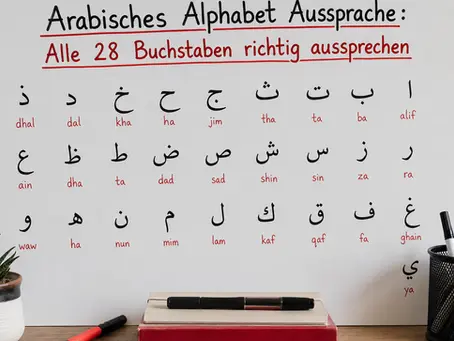 Arabisches Alphabet Aussprache:
Alle 28 Buchstaben richtig aussprechen
ا ب ت ث ج ح خ د ذ
alif ba ta tha jim ha kha dal dhal
ر ز س ش ص ض ط ظ ع
ra za sin shin sad dad ta dha ain
غ ف ق ك ل م ن ه و
ghain fa qaf kaf lam mim nun ha waw
ي
ya